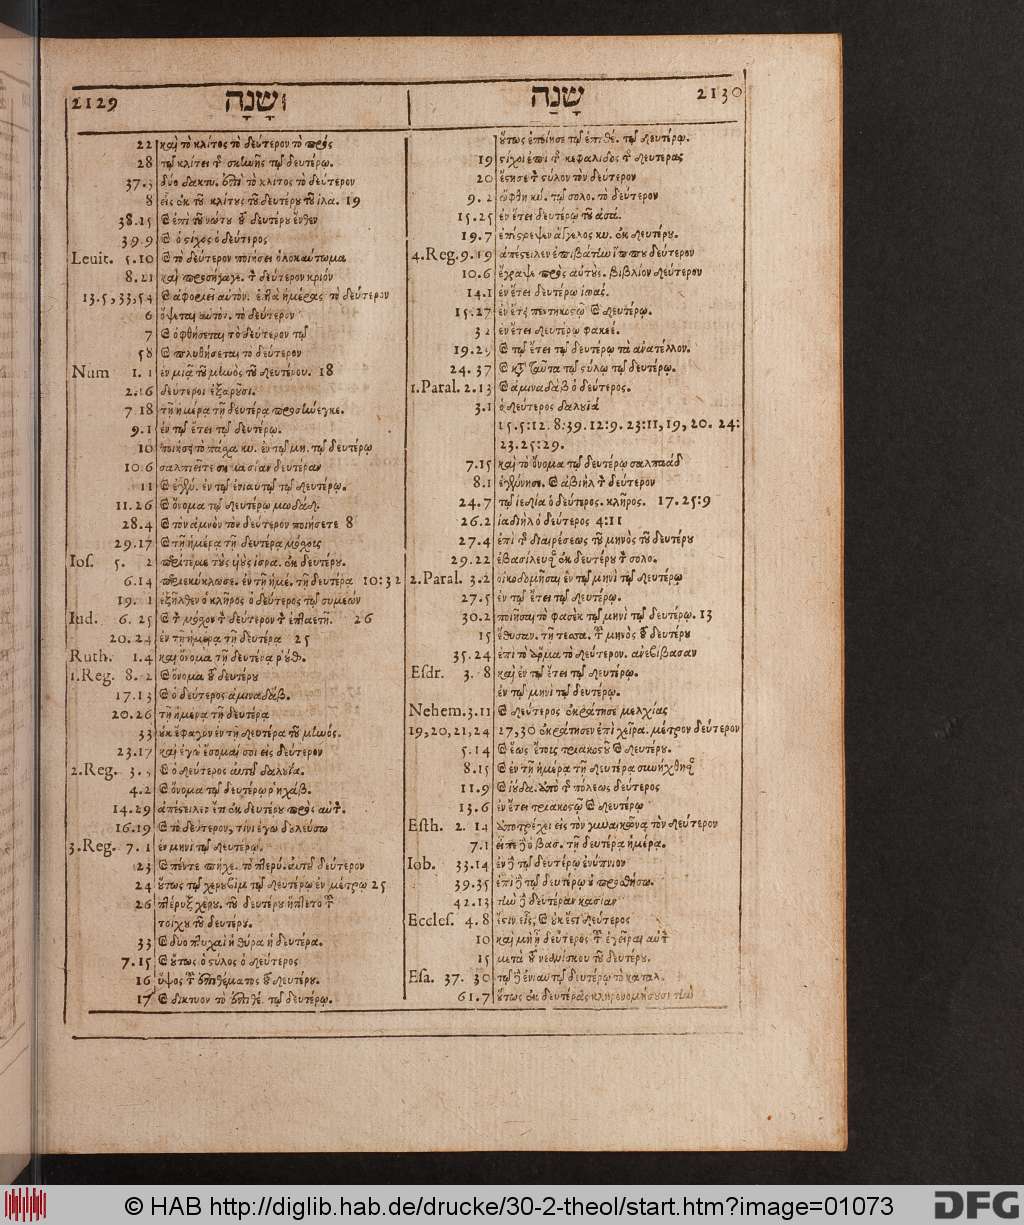 2129 וּשָׁנָה
22 καὶ τὸ κλίτος τὸ δεύτερον τὸ πρὸς
28 τῷ κλίτει τ σκηνῆς τῷ δευτέρῳ.
37.3 δύο δακτυ. ἐπὶ τὸ κλίτος τὸ δεύτερον
8 εἷς ἐκ τοῦ κλίτους τοῦ δευτέρου τοῦ ἱλα. 19
38.15 καὶ ἐπὶ τοῦ νώτου τοῦ δευτέρου ἔνθεν
39.9 καὶ ὁ στίχος ὁ δεύτερος
Leuit. 5.10 καὶ τὸ δεύτερον ποιήσει ὁλοκαύτωμα
8.21 καὶ προσήγαγε. τὸν δεύτερον κριὸν
13.5,33,54 καὶ ἀφοριεῖ αὐτὸν. ἑπτὰ ἡμέρας τὸ δεύτερον
6 ὄψεται αὐτὸν. τὸ δεύτερον
7 καὶ ὀφθήσεται τὸ δεύτερον τῷ
58 καὶ πλυθήσεται τὸ δεύτερον
Num 1.1 ἐν μιᾷ τοῦ μηνὸς τοῦ δευτέρου. 18
2.16 δεύτεροι ἐξαροῦσι.
7.18 τῇ ἡμέρᾳ τῇ δευτέρᾳ προσήνεγκε.
9.1 ἐν τῷ ἔτει τῷ δευτέρῳ.
10 ποιήσει τὸ πάσχα κυ. ἐν τῷ μη. τῷ δευτέρῳ
10.6 σαλπιεῖτε σημασίαν δευτέραν
11 καὶ ἐγένε. ἐν τῷ ἐνιαυτῷ τῷ δευτέρῳ.
11.26 καὶ ὄνομα τῷ δευτέρῳ μωδάδ.
28.4 καὶ τὸν ἀμνὸν τὸν δεύτερον ποιήσετε 8
29.17 καὶ τῇ ἡμέρᾳ τῇ δευτέρᾳ μόσχοις
Ios. 5. 2 περίτεμε τοὺς υἱοὺς ἰσρα. ἐκ δευτέρου.
6.14 περιεκύκλωσε. ἐν τῇ ἡμέ. τῇ δευτέρᾳ 10:32
19. 1 ἐξῆλθεν ὁ κλῆρος ὁ δεύτερος τῷ συμεών
Iud. 6.25 καὶ τὸν μόσχον τὸν δεύτερον τὸν ἑπταετῆ. 26
20.24 ἐν τῇ ἡμέρᾳ τῇ δευτέρᾳ 25
Ruth. 1.4 καὶ ὄνομα τῇ δευτέρᾳ ῥούθ.
1.Reg. 8.2 καὶ ὄνομα τοῦ δευτέρου
17.13 καὶ ὁ δεύτερος ἀμιναδάβ.
20.26 τῇ ἡμέρᾳ τῇ δευτέρᾳ
33 οὐκ ἔφαγον ἐν τῇ δευτέρᾳ τοῦ μηνός.
23.17 καὶ ἐγὼ ἔσομαί σοι εἰς δεύτερον
2.Reg. 3.3 καὶ ὁ δεύτερος αὐτοῦ δαλουΐα.
4.2 καὶ ὄνομα τῷ δευτέρῳ ῥηχάβ.
14.29 ἀπέστειλεν ἔτι ἐκ δευτέρου πρὸς αὐτὸν.
16.19 καὶ τὸ δεύτερον, τίνι ἐγὼ δουλεύσω
3.Reg. 7.1 ἐν μηνὶ τῷ δευτέρῳ.
23 καὶ πέντε πήχε. τὸ πτερύ. αὐτοῦ δεύτερον
24 οὕτως τῷ χερουβὶμ τῷ δευτέρῳ ἐν μέτρῳ 25
26 πτέρυξ χερου. τοῦ δευτέρου ἥπτετο τοῦ
τοίχου τοῦ δευτέρου.
33 καὶ δύο πτυχαὶ ἡ θύρα ἡ δευτέρα.
7.15 καὶ οὕτως ὁ στύλος ὁ δεύτερος
16 ὕψος τοῦ ἐπιθέματος τοῦ δευτέρου.
17 καὶ δίκτυον τὸ ἐπιθέ. τῷ δευτέρῳ.
שָׁנַה 2130
οὕτως ἐποίησε τῷ ἐπιθέ. τῷ δευτέρῳ.
19 στίχοι ἐπὶ τῆς κεφαλίδος τῆς δευτέρας
20 ἔστησε τὸν στύλον τὸν δεύτερον
9.2 ὤφθη κύ. τῷ σολο. τὸ δεύτερον
15.25 ἐν ἔτει δευτέρῳ τοῦ ἀσά.
19.7 ἐπέστρεψεν ἄγγελος κυ. ἐκ δευτέρου.
4.Reg. 9.19 ἀπέστειλεν ἐπιβάτην ἵππου δεύτερον
10.6 ἔγραψε πρὸς αὐτοὺς. βιβλίον δεύτερον
14.1 ἐν ἔτει δευτέρῳ ἰωάς.
15.27 ἐν ἔτει πεντηκοστῷ καὶ δευτέρῳ.
32 ἐν ἔτει δευτέρῳ φακεέ.
19.29 καὶ τῷ ἔτει τῷ δευτέρῳ τὰ ἀνατέλλον.
24.37 καὶ κατὰ ταῦτα τῷ στύλῳ τῷ δευτέρῳ.
1.Paral. 2.13 καὶ ἀμιναδὰβ ὁ δεύτερος.
3.1 ὁ δεύτερος δαλουιά
15.5:12.8:39.12:9.23:11,19,20.24:
23.25:29.
7.15 καὶ τὸ ὄνομα τῷ δευτέρῳ σαλπαάδ
8.1 ἐγέννησε. καὶ ἀβιὴλ τὸν δεύτερον
24.7 τῷ ἰεδίᾳ ὁ δεύτερος. κλῆρος. 17.25:9
26.2 ἰαδιὴλ ὁ δεύτερος 4:11
27.4 ἐπὶ τῆς διαιρέσεως τοῦ μηνὸς τοῦ δευτέρου
29.22 ἐβασίλευσαν ἐκ δευτέρου τὸν σολο.
2.Paral. 3.2 οἰκοδομῆσαι ἐν τῷ μηνὶ τῷ δευτέρῳ
27.5 ἐν τῷ ἔτει τῷ δευτέρῳ.
30.2 ποιῆσαι τὸ φασὲκ τῷ μηνὶ τῷ δευτέρῳ. 13
15 ἔθυσαν. τῇ τεσσα. τοῦ μηνὸς τοῦ δευτέρου
35.24 ἐπὶ τὸ ἅρμα τὸ δεύτερον. ἀνεβίβασαν
Esdr. 3.8 καὶ ἐν τῷ ἔτει τῷ δευτέρῳ.
ἐν τῷ μηνὶ τῷ δευτέρῳ.
Nehem. 3.11 καὶ δεύτερος ἐκράτησε μελχίας
19,20,21,24 27,30 ἐκράτησεν ἐπὶ χεῖρα. μέτρον δεύτερον
5.14 καὶ ἕως ἔτους τριακοστοῦ καὶ δευτέρου.
8.15 καὶ ἐν τῇ ἡμέρᾳ τῇ δευτέρᾳ συνήχθησαν
11.9 καὶ ἰούδα. ἀπὸ τῆς πόλεως δεύτερος
13.6 ἐν ἔτει τριακοστῷ καὶ δευτέρῳ
Esth. 2.14 ἀποτρέχει εἰς τὸν γυναικῶνα τὸν δεύτερον
7.1 εἶπε δὲ ὁ βασ. τῇ δευτέρᾳ ἡμέρᾳ.
Iob. 33.14 ἐν δὲ τῷ δευτέρῳ ἐνύπνιον
39.35 ἐπὶ δὲ τῷ δευτέρῳ οὐ προσθήσω.
42.13 τὴν δὲ δευτέραν κασίαν
Eccles. 4.8 ἔστιν εἷς, καὶ οὐκ ἔστι δεύτερος
10 καὶ μὴ ᾖ δεύτερος τοῦ ἐγεῖραι αὐτὸν
15 μετὰ τοῦ νεανίσκου τοῦ δευτέρου.
Esa. 37.30 τῷ δὲ ἐνιαυτῷ δευτέρῳ τὸ καταλ.
61.7 οὕτως ἐκ δευτέρας κληρονομήσουσι τὴν
© HAB http://diglib.hab.de/drucke/30-2-theol/start.htm?image=01073
DFG